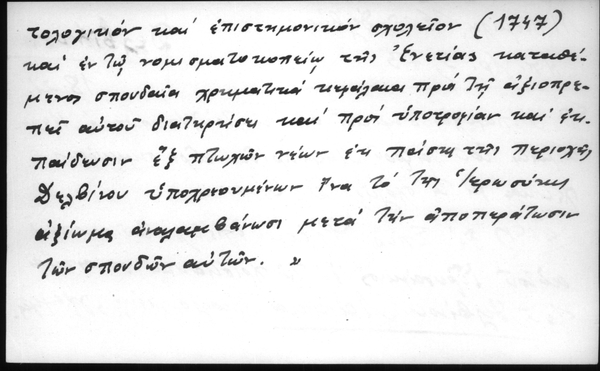 τολογικόν καί ἐπιστημονικόν σχολεῖον (1747)
καί ἐν τῷ νομισματοκοπείῳ τῆς Ἑνετίας καταθέ-
μενος σπουδαῖα χρηματικά κεφάλαια πρός τῇ ἀξιοπρε-
πεῖ αὐτοῦ διατηρήσει καί πρός ὑποτροφίαν καί ἐκ-
παίδευσιν ἕξ πτωχῶν νέων ἐκ πάσης τῆς περιοχῆς
Δελβίνου ὑποχρεουμένων ἵνα τό τῆς Ἱερωσύνης
ἀξίωμα ἀναλαμβάνωσι μετά τήν ἀποπεράτωσιν
τῶν σπουδῶν αὐτῶν. »